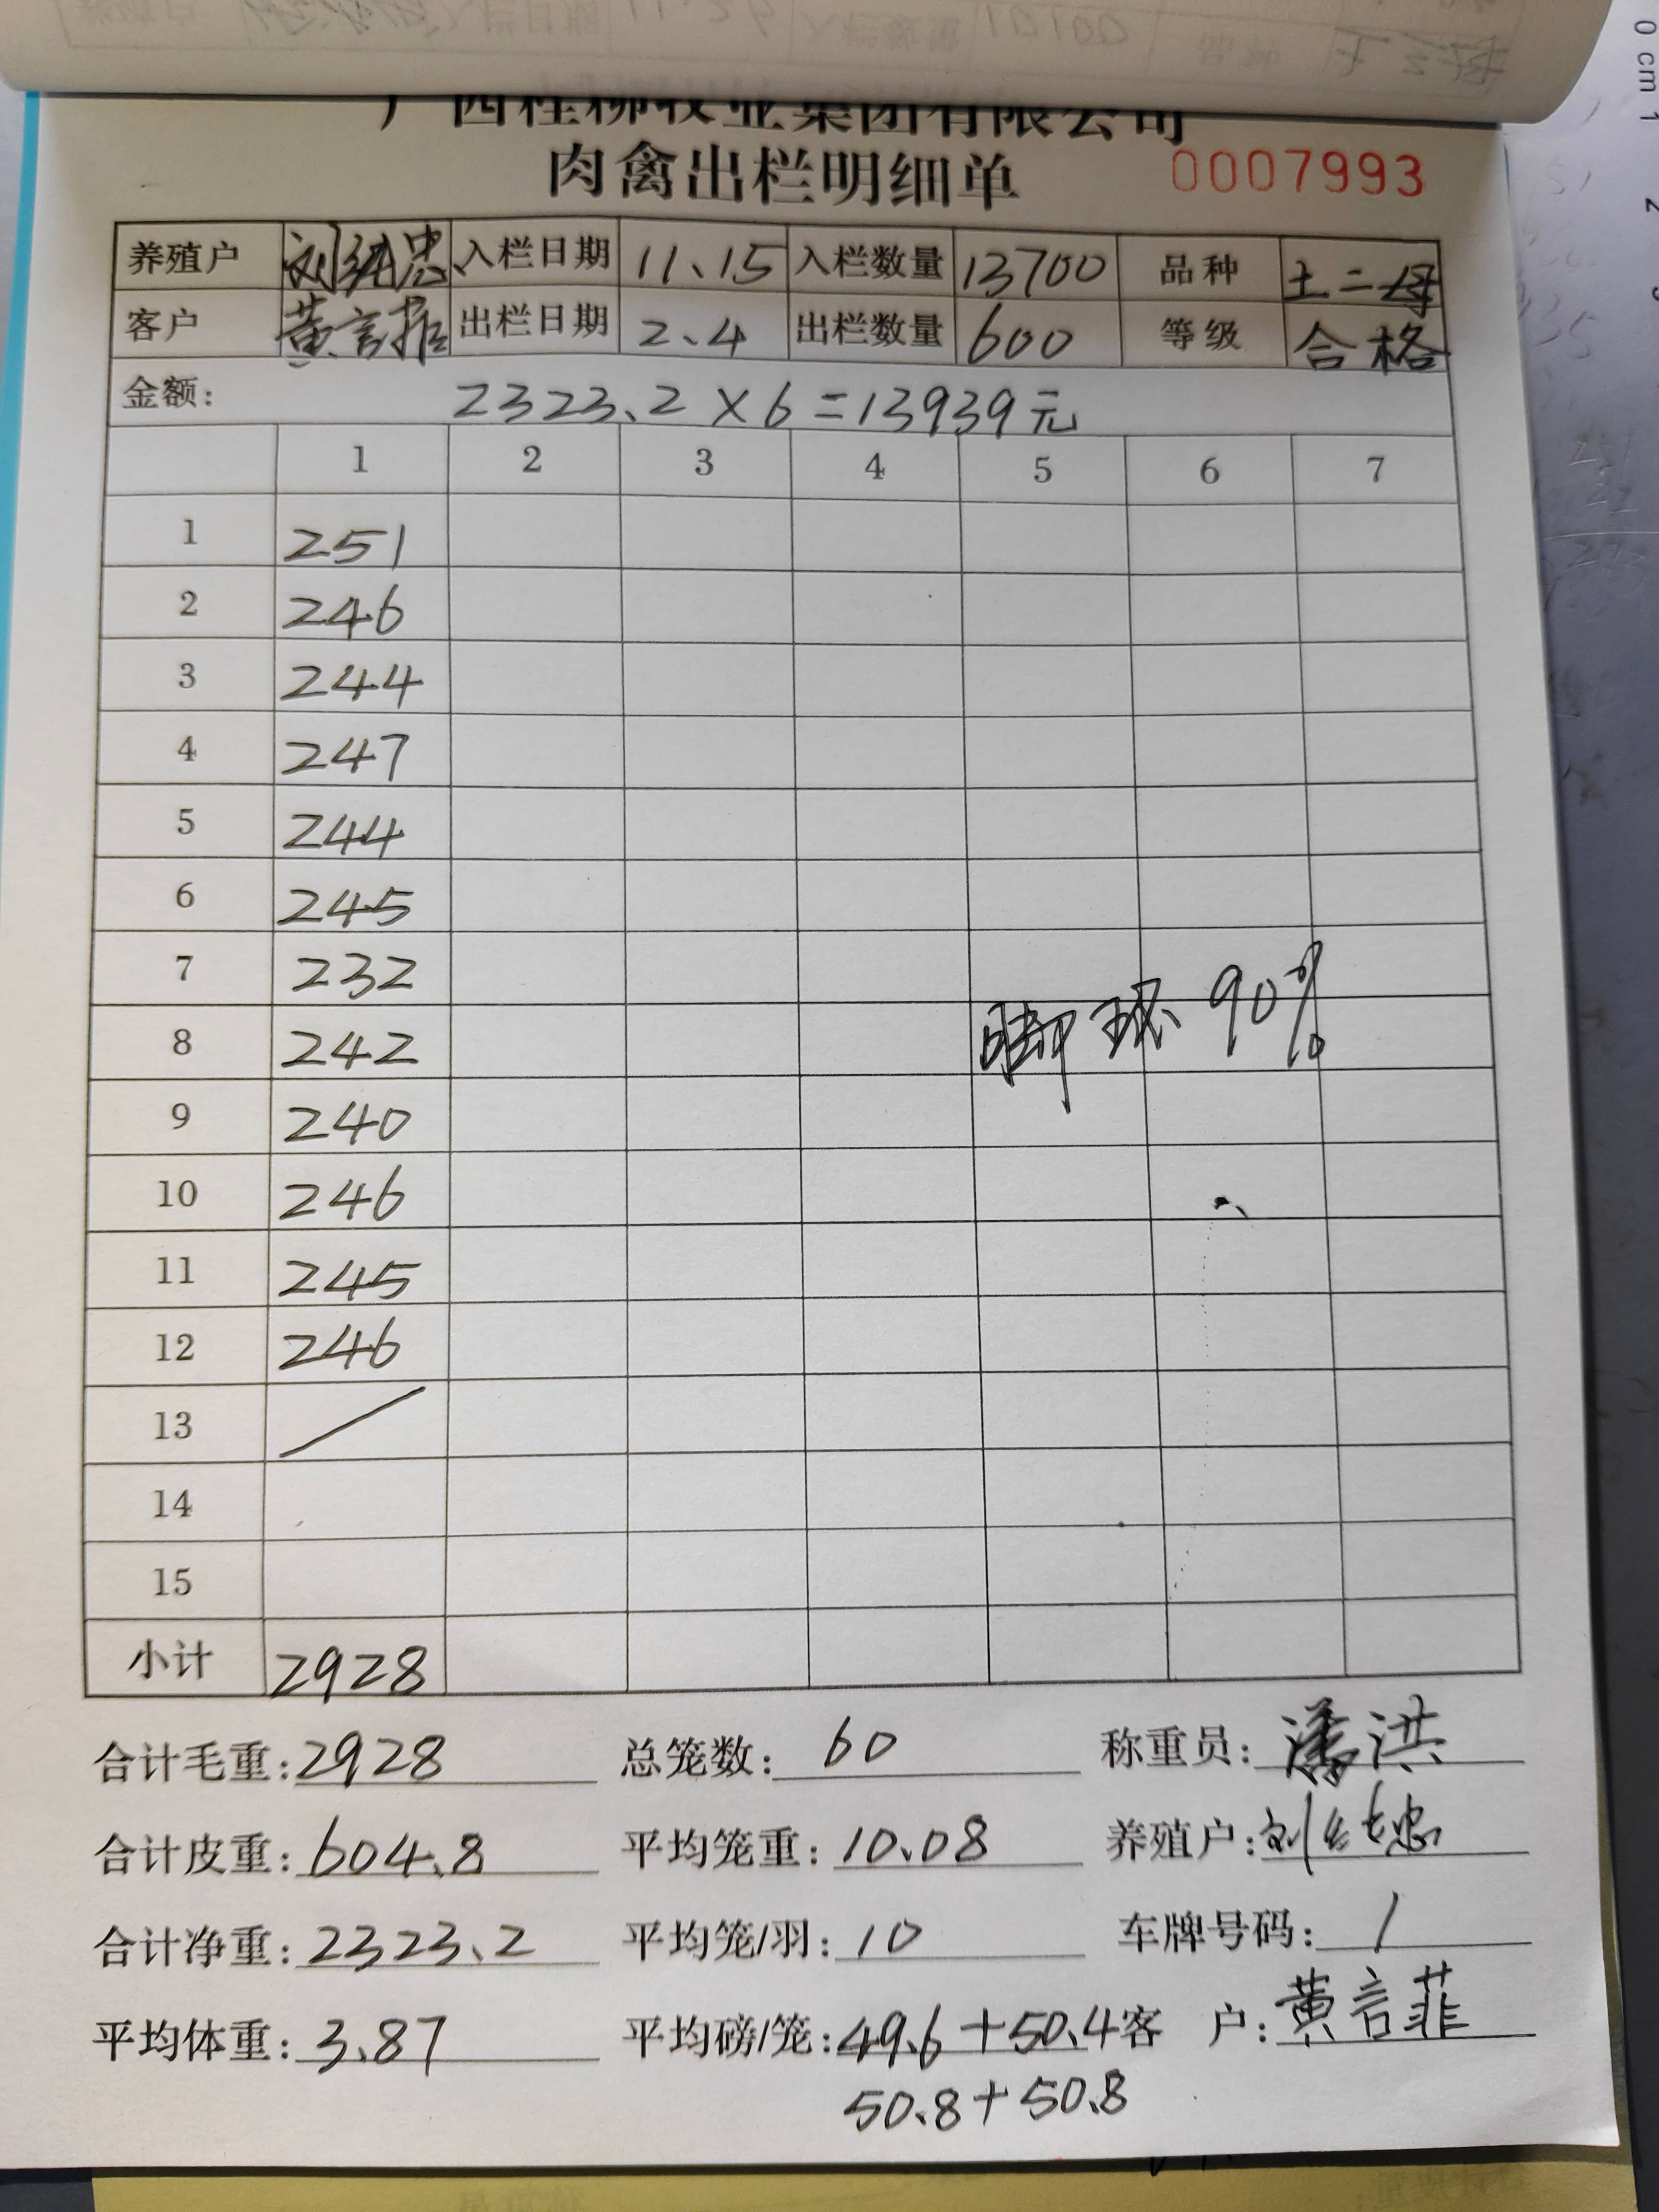 广西桂柳牧业集团有限公司
肉禽出栏明细单 0007993
养殖户 刘纯忠 入栏日期 11.15 入栏数量 13700 品种 土二母
客户 黄言 出栏日期 2.4 出栏数量 600 等级 合格
金额: 2323.2×6=13939元
1 2 3 4 5 6 7
1 251
2 246
3 244
4 247
5 244
6 245
7 232
8 242
脚环90%
9 240
10 246
11 245
12 246
13 /
14
15
小计 2928
合计毛重:2928 总笼数:60 称重员:潘洪
合计皮重:604.8 平均笼重:10.08 养殖户:刘纯忠
合计净重:2323.2 平均笼/羽:10 车牌号码:/
平均体重:3.87 平均磅/笼:49.6+50.4 客 户:黄言菲
50.8+50.8
0 cm 1 2